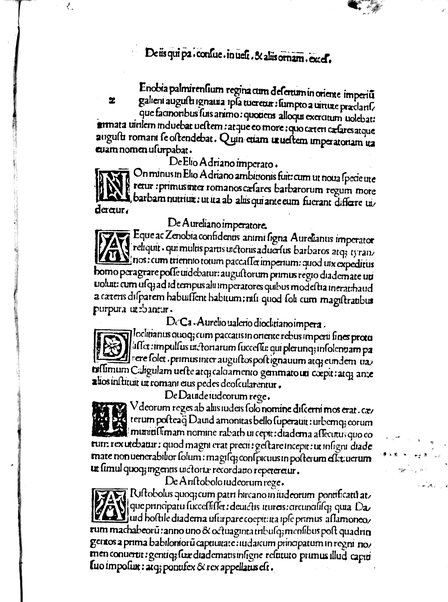 De iis qui pa. consue. in uest. & aliis ornam. exces.
Enobia palmirensium regina cum desertum in oriente imperiũ
z galieni augusti ignauia ipsa tueretur: sumpto a uirtute præclarisq̃
que facinoribus suis animo: quotiens alloqui exercitum uolebat:
armata uirilem induebat uestem: atque eo more: quo cæteri cæsares atque
augusti romani se ostendebat. Quin etiam ut uestem imperatoriam ita
etiam nomen usurpabat.
De Elio Adriano imperato.
NOn minus in Elio Adriano ambitionis fuit: cum ut noua specie ute
retur: primus inter romanos cæsares barbarorum regum more
barbam nutriuit: ut ita ab aliis qui ante eum fuerant differre ui
deretur.
De Aureliano imperatore.
AEque ac Zenobia confidentis animi signa Aurelianus imperator
reliquit. qui multis partis uictoriis aduersus barbaros atq; tyran
nos: cum triennio totum paccasset imperium: quod uix expeditus
homo peragrare posse uidebatur: augustorum primus regio diademate uti
uoluit: cum usq; ad id tempus alii imperatores quibus modestia inerat haud
a cæteris disparem habuissent habitum: nisi quod soli cum magistratibus
purpura utebantur.
De Ca. Aurelio ualerio dioclitiano impera.
DIoclitianus quoq; cum paccatis in oriente rebus imperii fines propa
gasset: impulsus uictoriarum successu: qui plerunq; insolentiam pa
rere solet. primus inter augustos post ignauum atq; eundem ua
nissimum Caligulam ueste atq; calceamento gemmato uti cœpit: atq; ante
alios instituit ut romani eius pedes deoscularentur.
De Dauide iudeorum rege.
IVdeorum reges ab aliis iudeis solo nomine discerni mos erat. cæ
terum postea Dauid amonitas bello superauit: urbemq; eorum
munitissimam nomine rabath ut cepit: diadema assecutus: quo eo
rum rex utebatur: quod magni erat precii gestare incepit: ut insigni diade
mate non uenerabilior solum: magisq; conspicuus in posterum esset: uerum
ut simul quoq; ingentis uictoriæ recordatio repeteretur.
De Aristobolo iudeorum rege.
ARistobolus quoq; cum patri hircano in iudeorum pontificatũ at
que principatu successisset: deuictis itureis: circuncisisq; quia Da
uid hostile diadema usurpare cœpit: ita ipse primus assamoneo
rum machabeorũ: anno uno & octuaginta tribusq; mensibus post quadrin
gentos a prima babiloniorũ captiuitate: iudaorum principatum in regni no
men conuertit: gentiq; suæ diadematis insigne restituto primus illud capiti
suo imposuit: atq; pontifex & rex appellatus est.